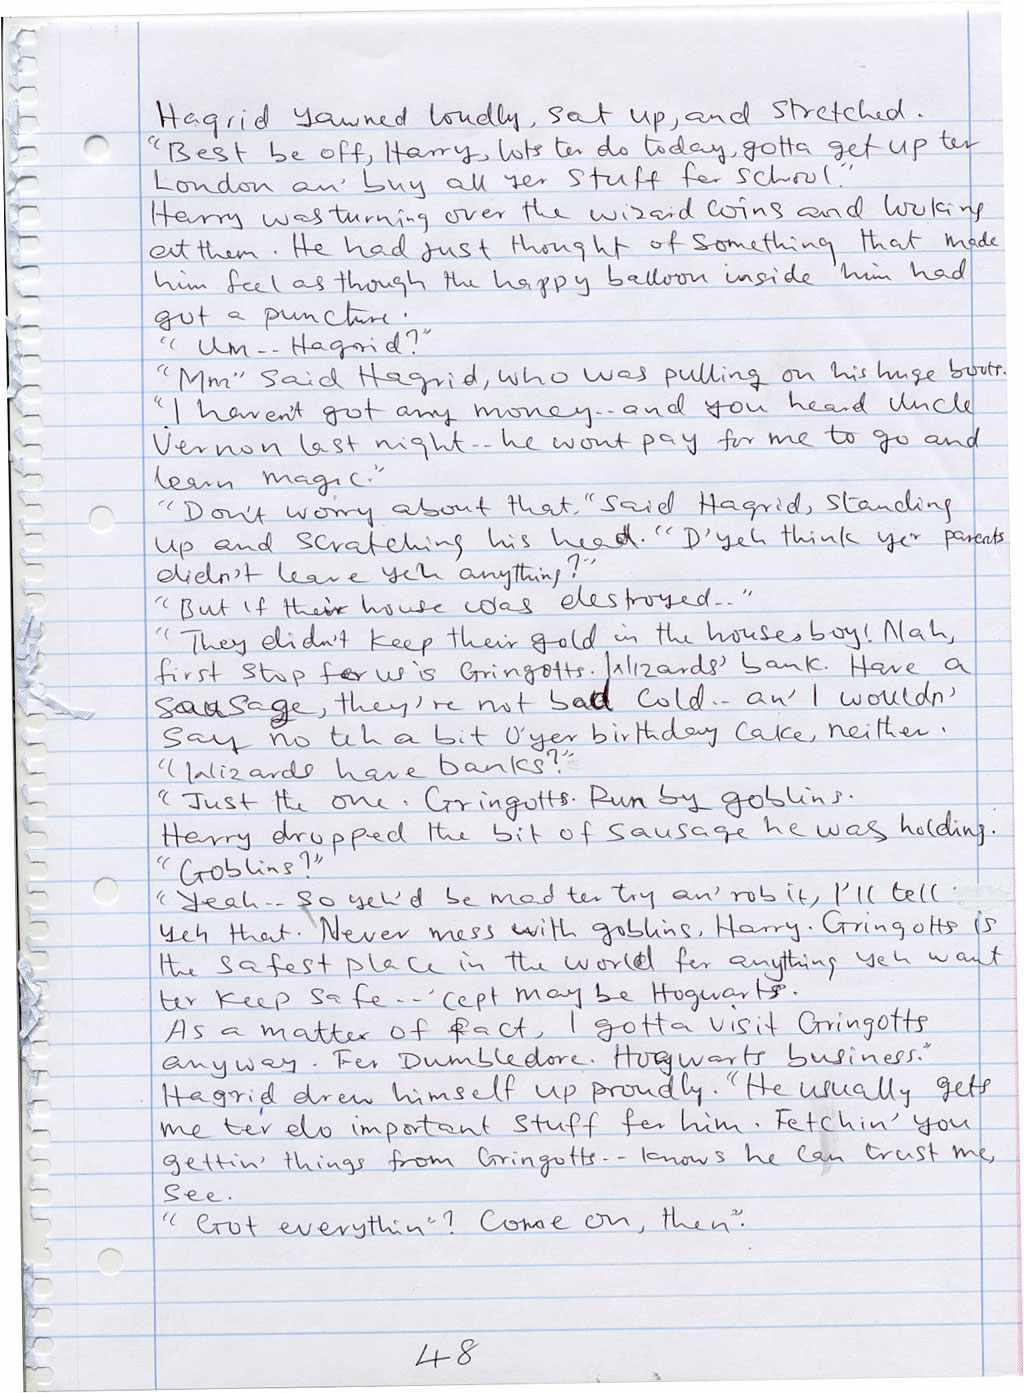 Hagrid yawned loudly, sat up, and stretched.
"Best be off, Harry, lots ter do today, gotta get up ter
London an' buy all yer stuff fer school."
Harry was turning over the wizard coins and looking
at them. He had just thought of something that made
him feel as though the happy balloon inside him had
got a puncture.
"Um -- Hagrid?"
"Mm" said Hagrid, who was pulling on his huge boots.
"I haven't got any money -- and you heard Uncle
Vernon last night -- he wont pay for me to go and
learn magic."
"Don't worry about that," said Hagrid, standing
up and scratching his head. "D'yeh think yer parents
didn't leave yeh anything?"
"But if their house was destroyed --"
"They didn't keep their gold in the house, boy! Nah,
first stop fer us is Gringotts. Wizards' bank. Have a
sausage, they're not bad cold -- an' I wouldn'
say no teh a bit o'yer birthday cake, neither.
"Wizards have banks?"
"Just the one. Gringotts. Run by goblins.
Harry dropped the bit of sausage he was holding.
"Goblins?"
"Yeah -- so yeh'd be mad ter try an' rob it, I'll tell
yeh that. Never mess with goblins, Harry. Gringotts is
the safest place in the world fer anything yeh want
ter keep safe -- 'cept maybe Hogwarts.
As a matter of fact, I gotta visit Gringotts
anyway. Fer Dumbledore. Hogwarts business."
Hagrid drew himself up proudly. "He usually gets
me ter do important stuff fer him. Fetchin' you
gettin' things from Gringotts -- knows he can trust me,
see.
"Got everythin'? Come on, then".
48